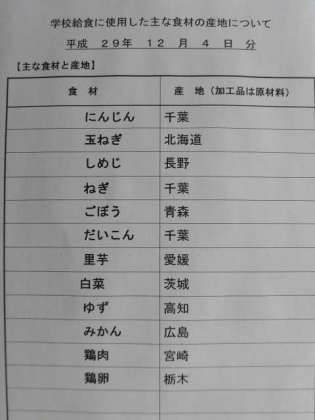 学校給食に使用した主な食材の産地について
平成 29年 12 月 4 日 分
【主な食材と産地】
食 材 産 地（加工品は原材料）
にんじん 千葉
玉ねぎ 北海道
しめじ 長野
ねぎ 千葉
ごぼう 青森
だいこん 千葉
里芋 愛媛
白菜 茨城
ゆず 高知
みかん 広島
鶏肉 宮崎
鶏卵 栃木